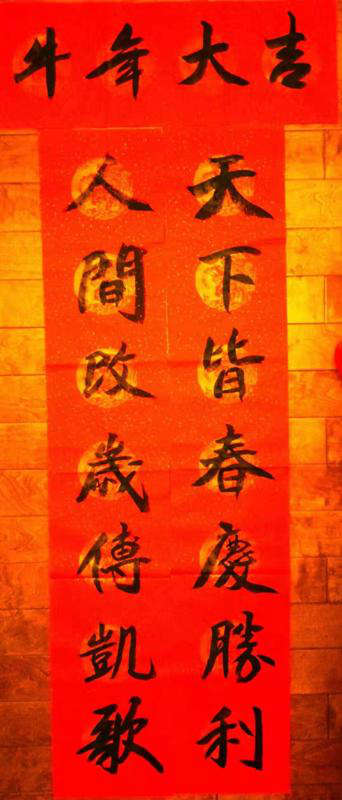 牛年大吉
天下皆春慶勝利
人間改歲傳凱歌